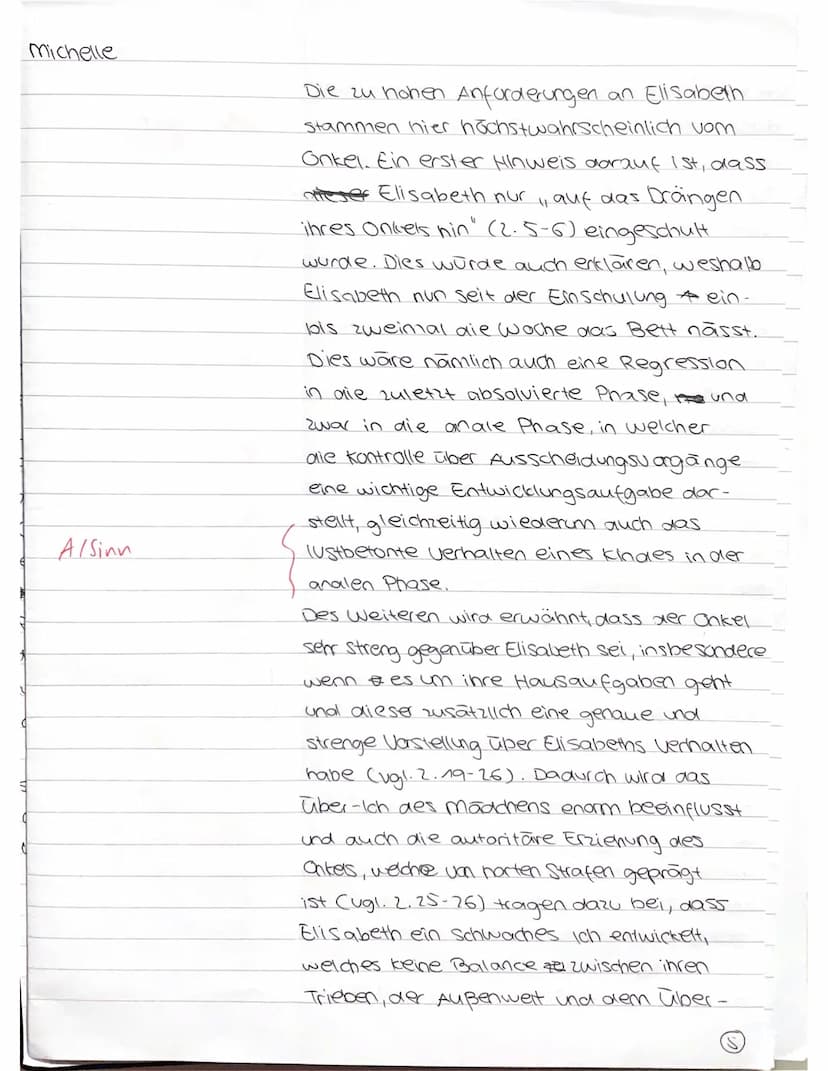 Michelle
Die zu hohen Anforderungen an Elisabeth
stammen hier höchstwahrscheinlich vom
Onkel. Ein erster Hinweis darauf ist, dass
dieser Elisabeth nur „auf das Drängen
ihres Onkels hin" (Z. 5-6) eingeschult
wurde. Dies würde auch erklären, weshalb
Elisabeth nun seit der Einschulung ein-
bis zweimal die Woche das Bett nässt.
Dies wäre nämlich auch eine Regression
in die zuletzt absolvierte Phase, und
zwar in die anale Phase, in welcher
die Kontrolle über Ausscheidungsvorgänge
eine wichtige Entwicklungsaufgabe dar-
stellt, gleichzeitig wiederum auch das
A/Sinn
lustbetonte Verhalten eines Kindes in der
analen Phase.
Des Weiteren wird erwähnt, dass der Onkel
sehr streng gegenüber Elisabeth sei, insbesondere
wenn es um ihre Hausaufgaben geht
und dieser zusätzlich eine genaue und
strenge Vorstellung über Elisabeths Verhalten
habe (vgl. Z. 19-26). Dadurch wird das
Über-Ich des Mädchens enorm beeinflusst
und auch die autoritäre Erziehung des
Onkels, welche von harten Strafen geprägt
ist (vgl. Z. 25-26) tragen dazu bei, dass
Elisabeth ein schwaches Ich entwickelt,
welches keine Balance zwischen ihren
Trieben, der Außenwelt und dem Über-
5